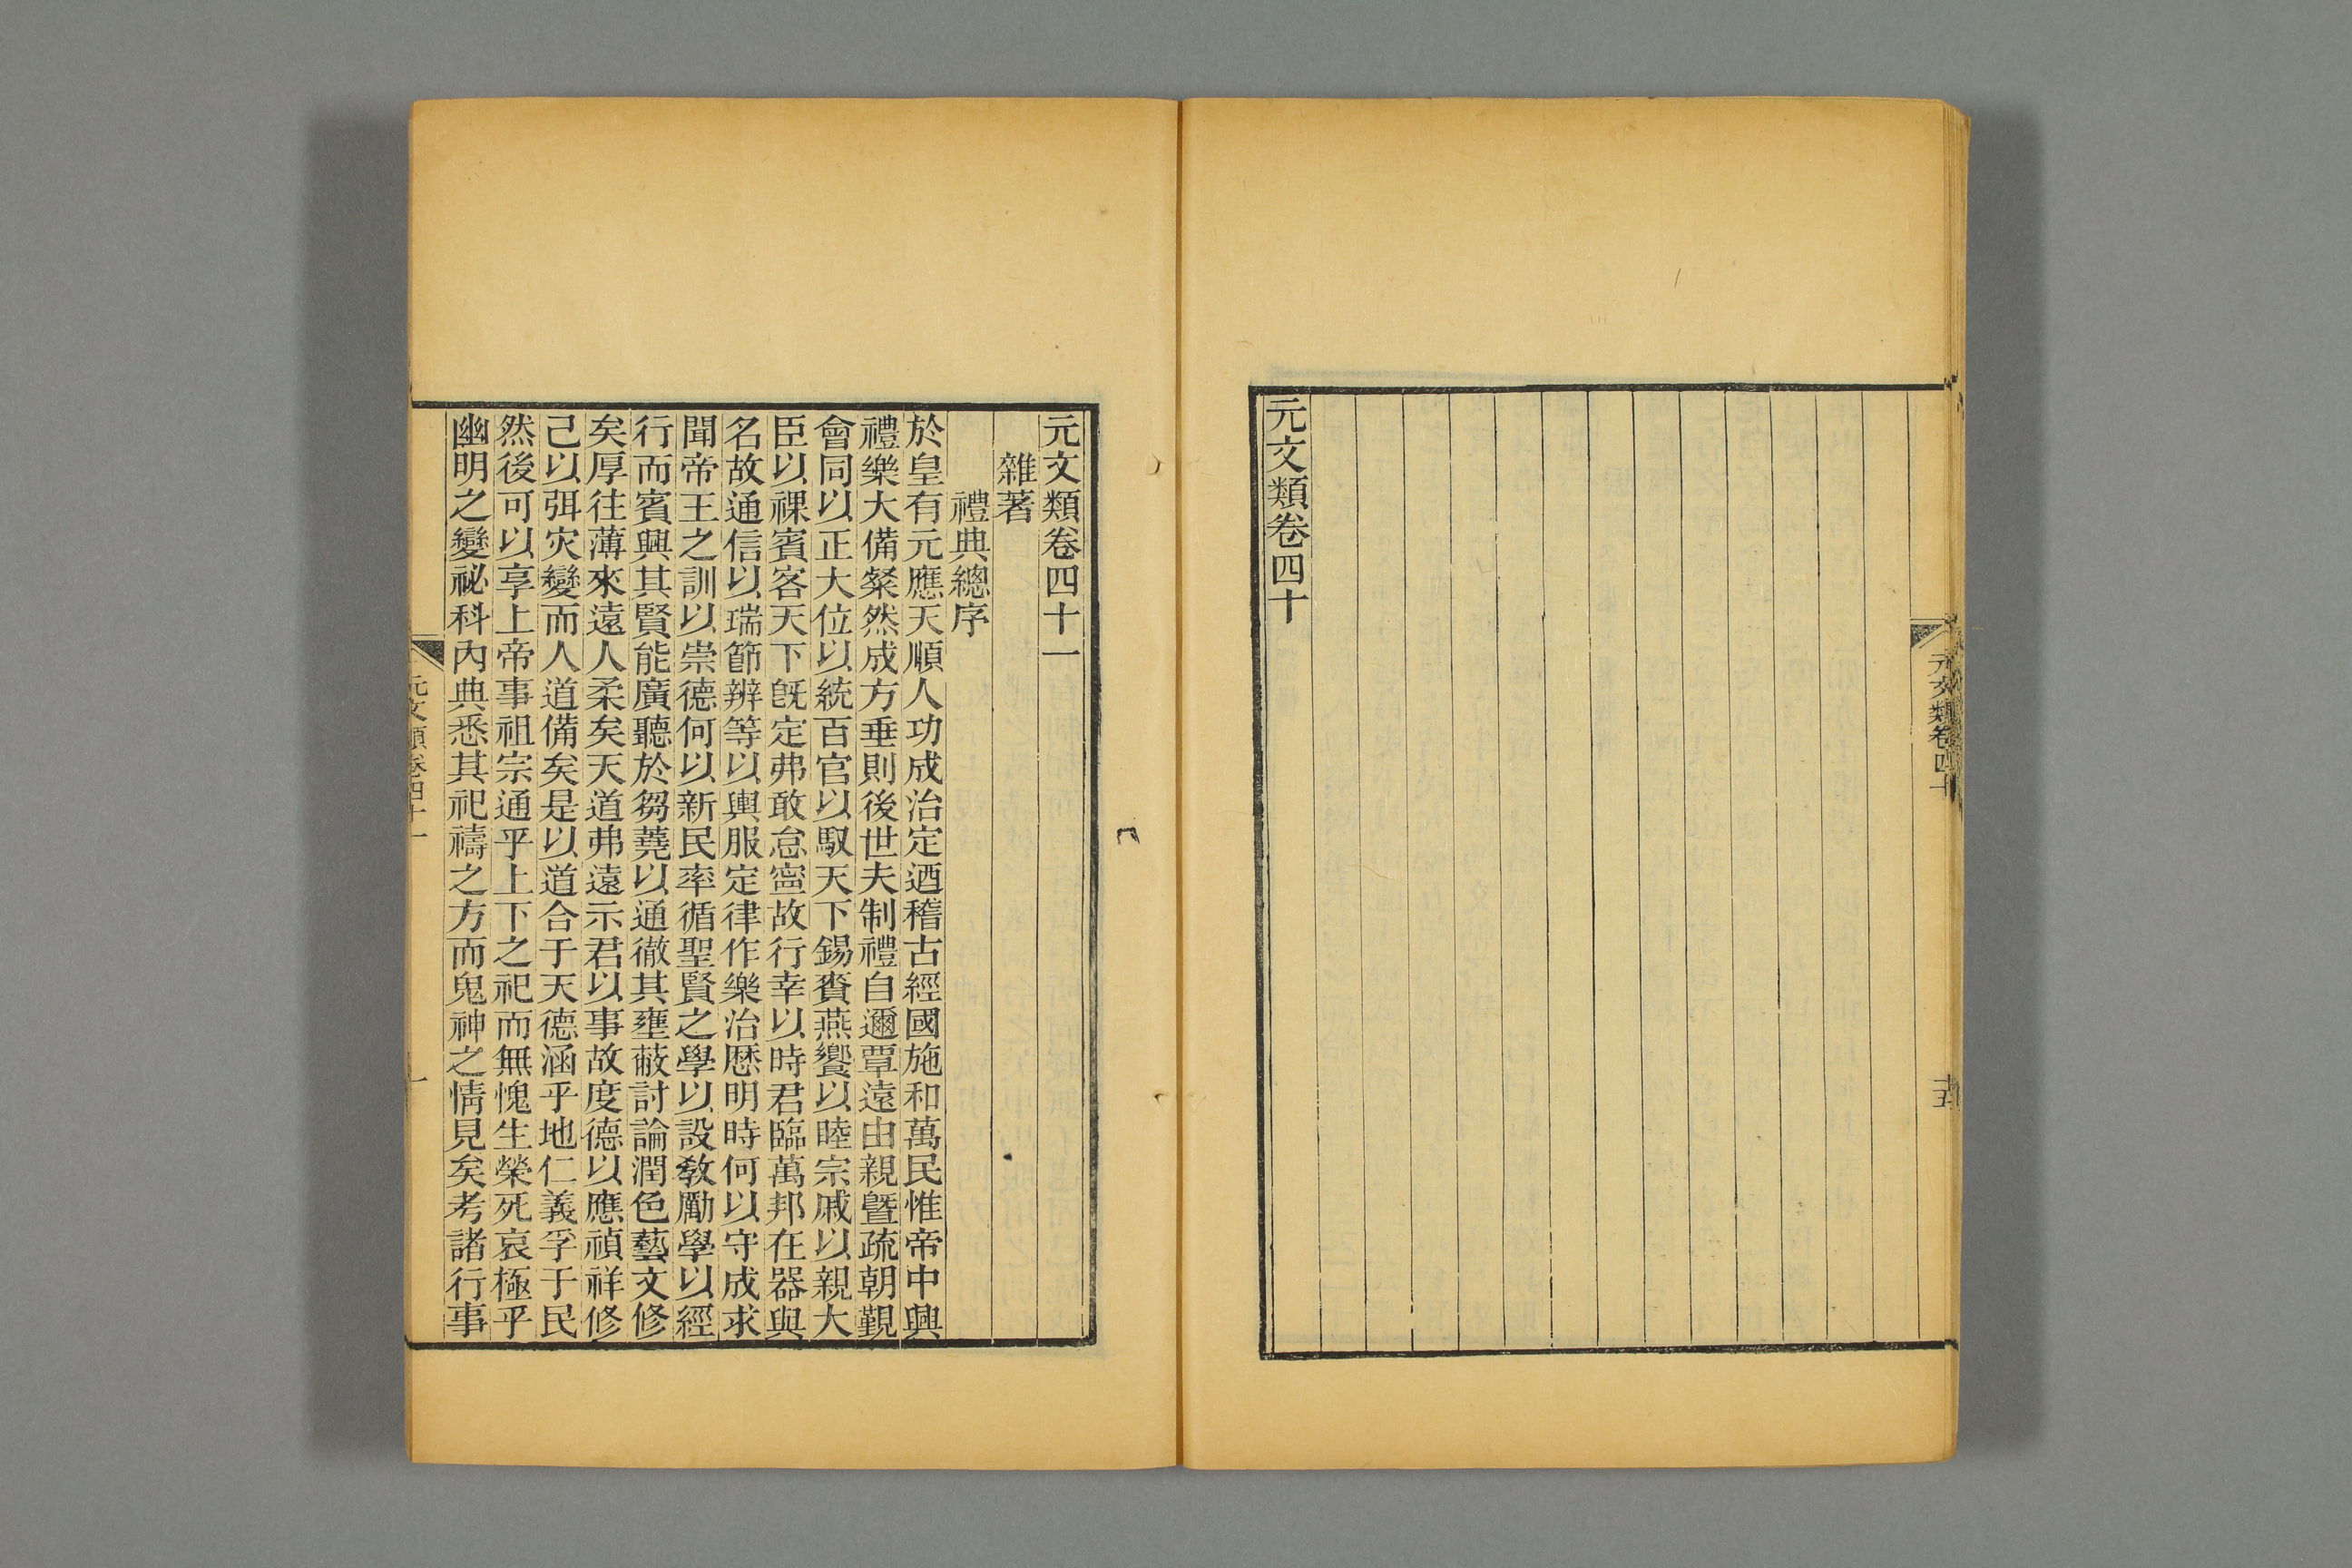 元文類卷四十
十五
元文類卷四十
元文類卷四十一
雜著
禮典總序
於皇有元應天順人功成治定迺稽古經國施和萬民惟帝中興
禮樂大備粲然成方垂則後世夫制禮自邇覃遠由親曁疏朝覲
會同以正大位以統百官以馭天下錫賚燕饗以睦宗戚以親大
臣以祼賓客天下旣定弗敢怠寍故行幸以時君臨萬邦在器與
名故通信以瑞節辨等以輿服定律作樂治厯明時何以守成求
聞帝王之訓以崇德何以新民率循聖賢之學以設敎勵學以經
行而賓興其賢能廣聽於芻蕘以通徹其壅蔽討論潤色藝文修
矣厚往薄來遠人柔矣天道弗遠示君以事故度德以應禎祥修
己以弭灾變而人道備矣是以道合于天德涵乎地仁義孚于民
然後可以享上帝事祖宗通乎上下之祀而無愧生榮死哀極乎
幽明之變祕科內典悉其祀禱之方而鬼神之情見矣考諸行事
元文類卷四十一
一